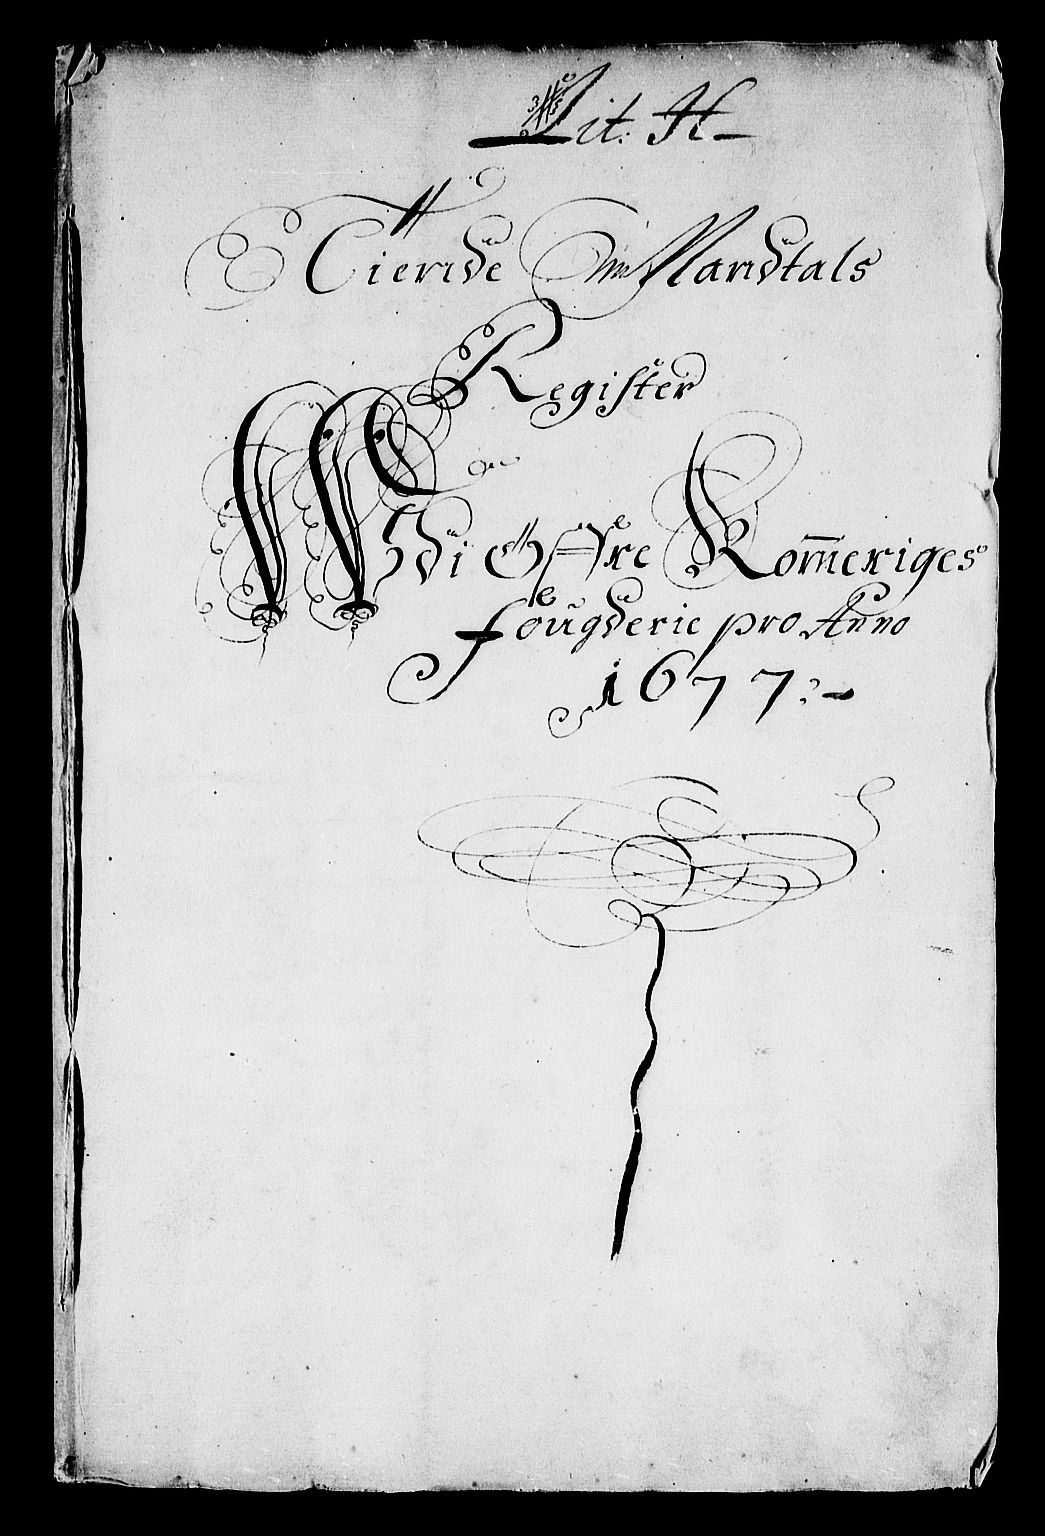 Lit: H
Tiende Mandtals
Register
Udi Øffre Rom̄eriges
fougderie pro Anno
1677:-